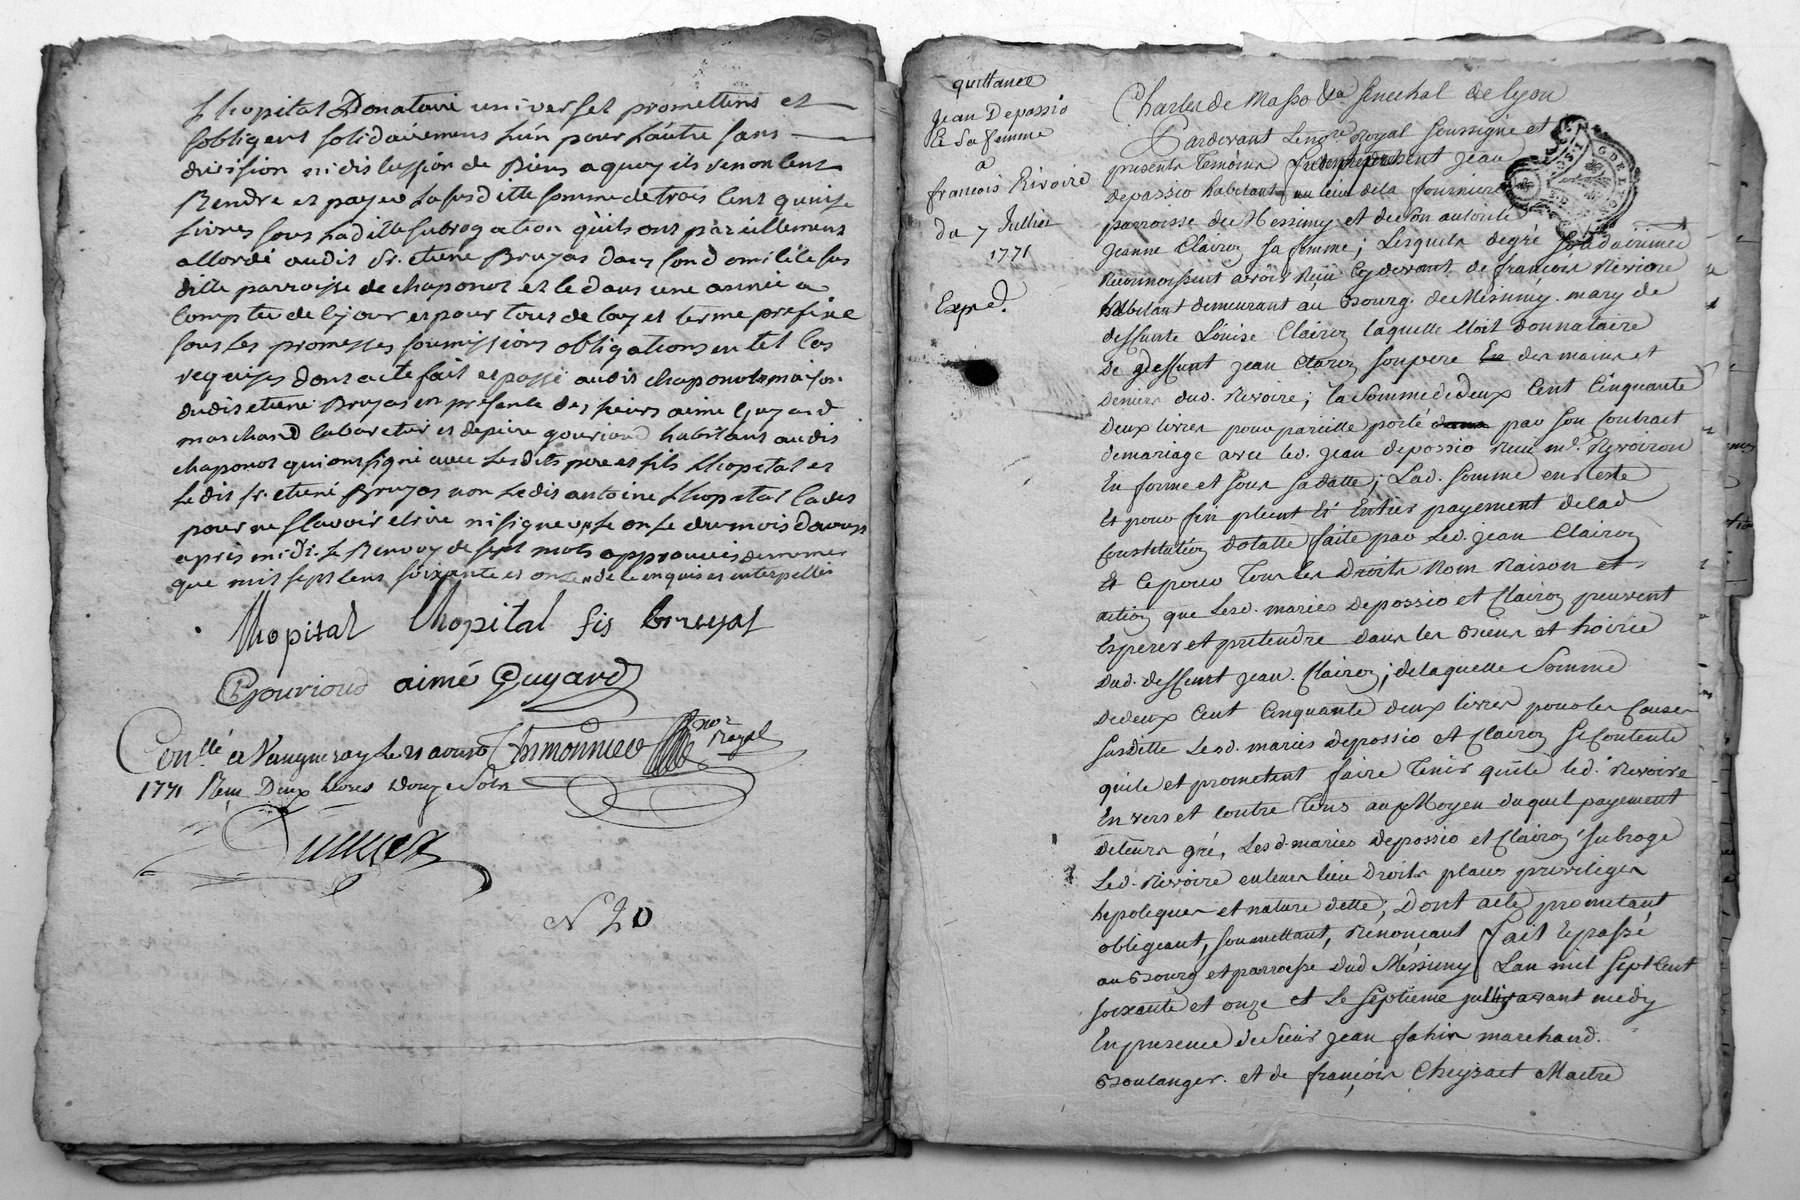 Lhopital Donataire universel promettens et
sobligens solidairemens L'un pour Lautre sans
division ni dis lussion de Biens a quoy ils renon lent
Rendre et payer La susditte somme de trois Cent quinze
Livres sous Laditte subrogation quils ont pareillemens
allordé audis Sr. etiene Bruyas dans son domicile sus
ditte parroisse de chaponot et le dans une année a
Compter de ce jour et pour tous delay et terme prefixe
sous les promesses soumissions obligations
requises dont acte fait et passé audis chaponot maison
dudis etiene Bruyas en présante des sieurs aimé Guyard
marchand Cabaretier et depierre gourioud habitans audis
chaponot qui ont signé avec Lesdits pere et fils Lhopital et
Ledis Sr. etiené Bruyas non Ledis antoine Lhopital
pour ne sçavoir elrire ni signer, le onse du mois daoust
après midi. Le Renvoy de sept mots approuvés
que mil sept Cens soixante et onze de le enquis et interpellés
Lhopital Lhopital fis bruyas
Gourioud aimé Guyard
Thimonnier nore Royal
Conllé a Vaugneray Le 21 aoust
1771 Reçu Deux livres Douze Sols
N 20
quittance
Jean Depassio
Et Sa femme
a
francois Rivoire
du 7 Juillet
1771
Exped.
Charles de Masso Sénechal de Lyon
Pardevant Le nore Royal soussigné et
presents temoins present jean
depassio habitant au lieu de la fourniere
parroisse de Messimy et de son autorité
Jeanne Clairon sa femme; Lesquels degré solidairement
Reconnoissent avoir Reçu Cy devant de françois Revoire
habitant demeurant au Bourg de Messimy. mary de
deffunte Loüise Clairon laquelle Etoit donnataire
de deffunt jean Clairon son pere des mains et
deniers dud. Revoire; la Somme de deux Cent Cinquante
deux livres pour pareille porté dans par son Contract
demariage avec led. jean depassio Reçu me. Revoiron
En forme et sous sa datte; Lad. somme en Reste
Et pour fin pleint Et Entier payement delad
Constitution dotalle faite par Led. jean Clairon
Et Ce pour Tous les Droits Nom Raison et
action que Lesd. mariés Depossio et Clairon peuvent
Esperer et pretendre dans les Biens et hoirie
Dud. deffunt jean. Clairon; de laquelle Somme
de deux Cent Cinquante deux livres pour les Causes
susditte Lesd. mariés depossio et Clairon se Contente
quite et prometent faire Tenir quite led. Revoire
Envers et Contre Tous au Moyen duquel payement
deleurs gré, Lesd. mariés depossio et Clairon subroge
Led. Revoire en leurs lieu Droits places privileges
hypoteques et nature dette; Dont acte prometant
obligeant, soumettant, Renonçant fait Et passé
au Bourg et parroisse dud Messimy Lan mil sept Cent
soixante et onze et Le septieme juillet avant medy
En presence de Sieur jean fahin marchand.
Boulanger. et de françois Cheysact Maitre